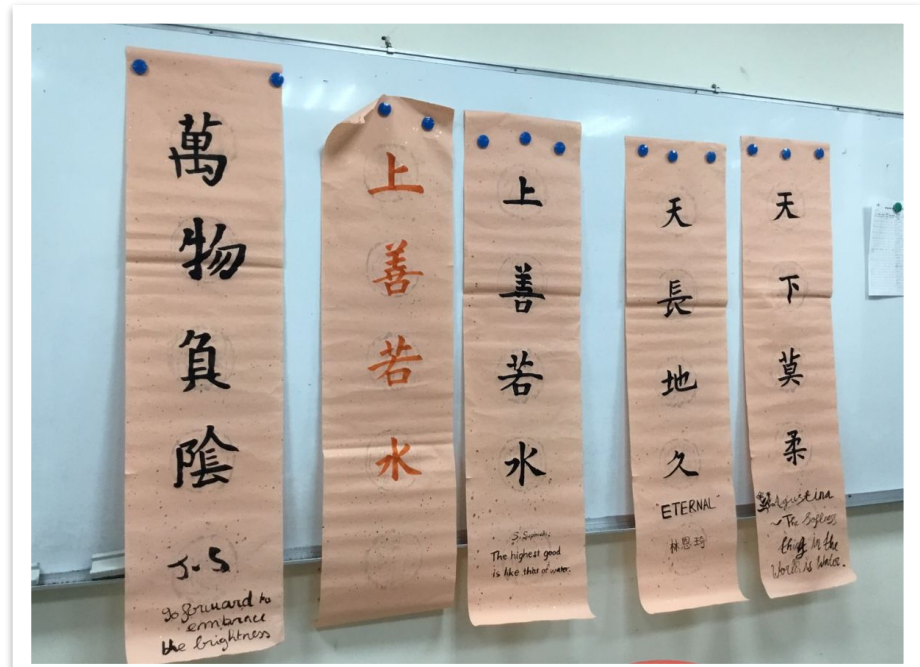 萬物負陰
J.S
go forward to
embrace
the brightness
上善若水
上善若水
S. 
The highest good
is like that of water.
天長地久
"ETERNAL"
林恩琦
天下莫柔
Agustina
The Softess
thing in the
World is Water.